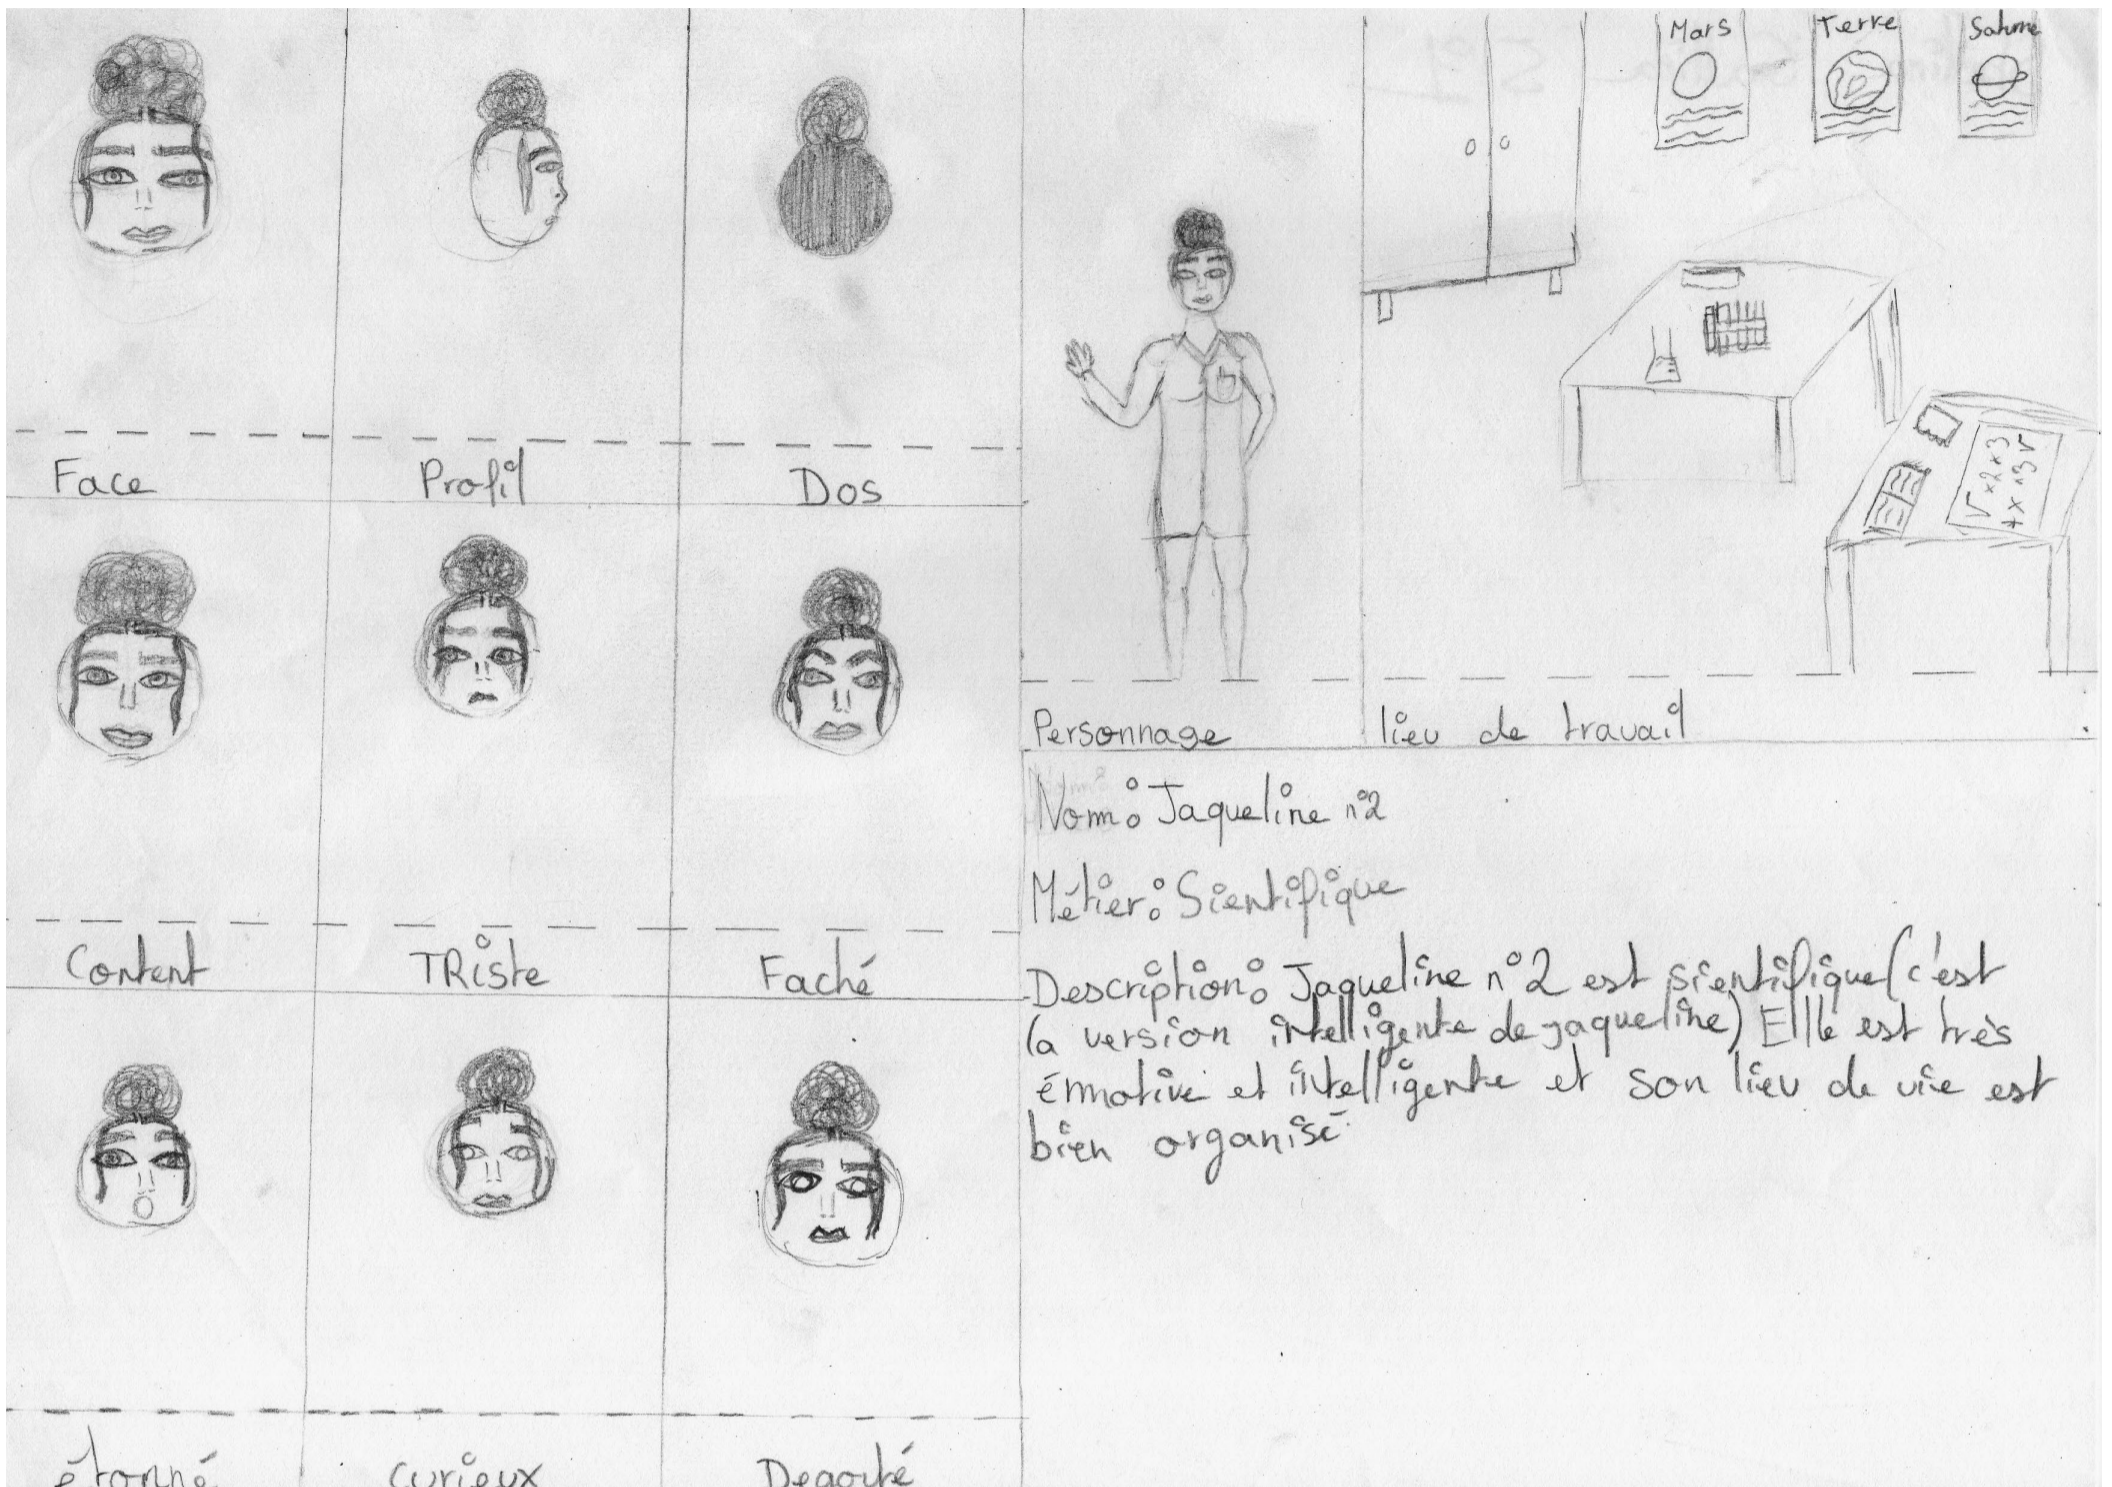 Face Profil Dos
Content TRiste Faché
étonné curieux Degouté
Mars Terre Saturne
Personnage lieu de travail
Nom: Jaqueline n°2
Métier: Sientifique
Description: Jaqueline n°2 est sientifique (c'est
la version intelligente de jaqueline) Elle est très
émotive et intelligente et son lieu de vie est
bien organisé.